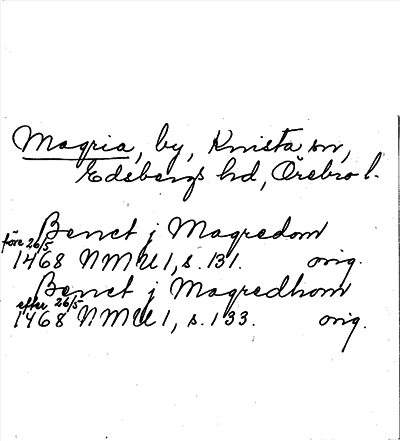 Magria, by, Knista sn,
Edsbergs hd, Örebro l.
Benct j Magredom
före 26/5
1468 NMU 1, s. 131. orig.
Benct j Magredhom
efter 26/5
1468 NMU 1, s. 133. orig.